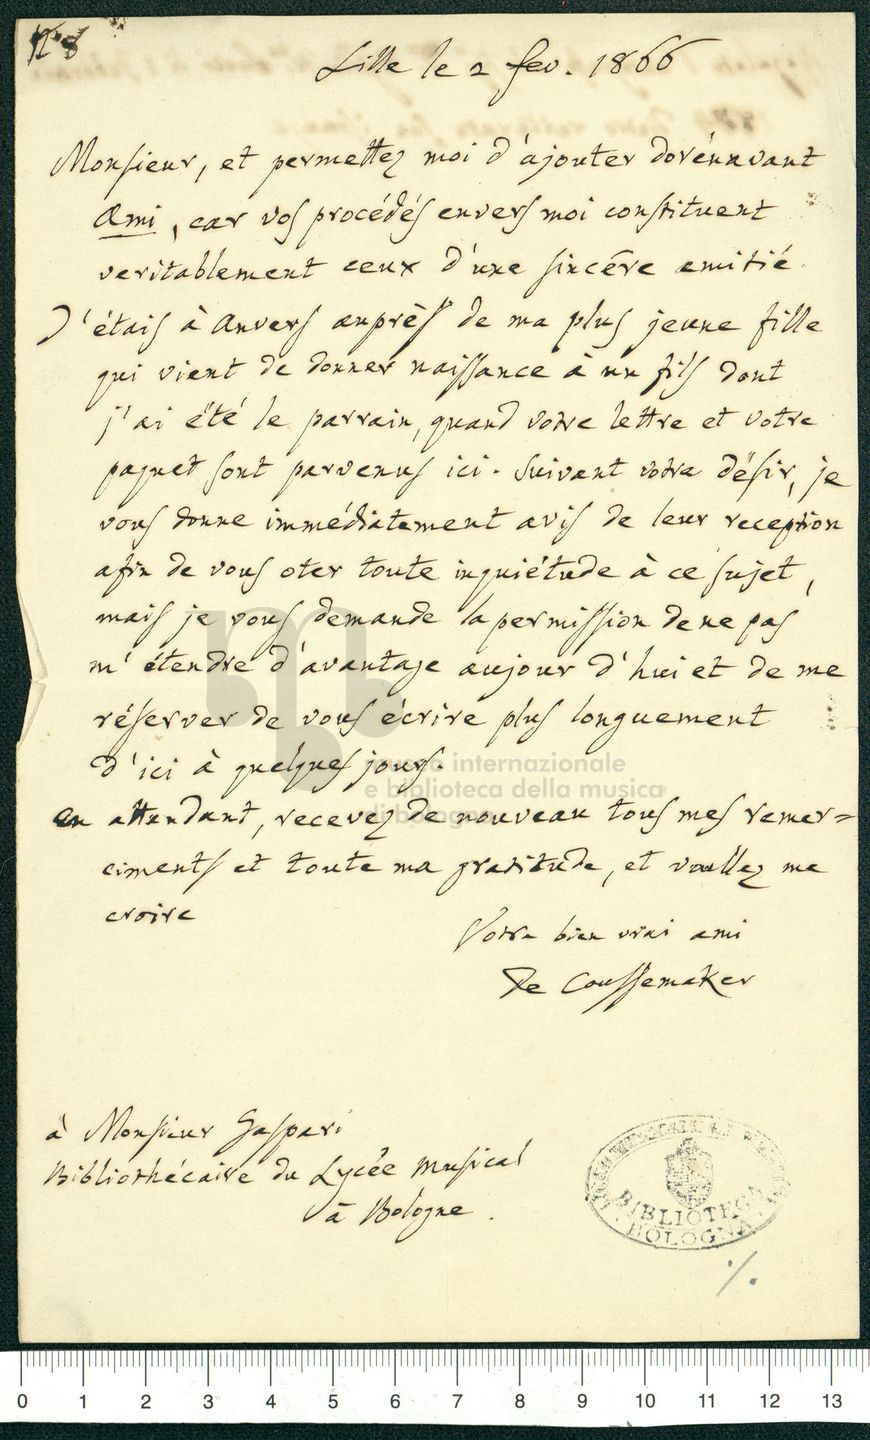 N.° 8
Lille le 2 fev. 1866
Monsieur, et permettez moi d'ajouter dorénavant
Ami, car vos procédés envers moi constituent
veritablement ceux d'une sincère amitié.
J'étais à Anvers auprès de ma plus jeune fille
qui vient de donner naissance à un fils dont
j'ai été le parrain, quand votre lettre et votre
paquet sont parvenus ici. Suivant votre désir, je
vous donne immédiatement avis de leur reception
afin de vous oter toute inquiétude à ce sujet,
mais je vous demande la permission de ne pas
m'étendre d'avantage aujour d'hui et de me
réserver de vous écrire plus longuement
d'ici à quelques jours.
museo internazionale
e biblioteca della musica
di bologna
en attendant, recevez de nouveau tous mes remer=
ciments et toute ma gratitude, et veuillez me
croire
Votre bien vrai ami
De Coussemaker
à Monsieur Gaspari
Bibliothécaire du Lycée musical
à Bologne.
BIBLIOTECA
BOLOGNA
0 1 2 3 4 5 6 7 8 9 10 11 12 13